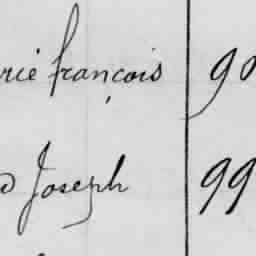 rié françois 90
d Joseph 99